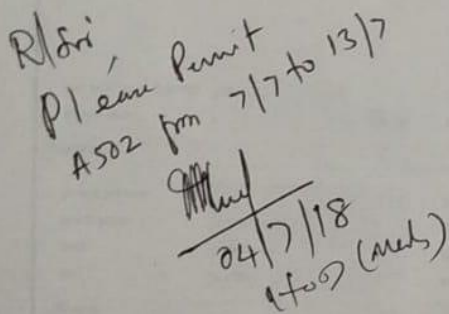 R/Sri,
Please Permit
A502 from 7/7 to 13/7
04/7/18